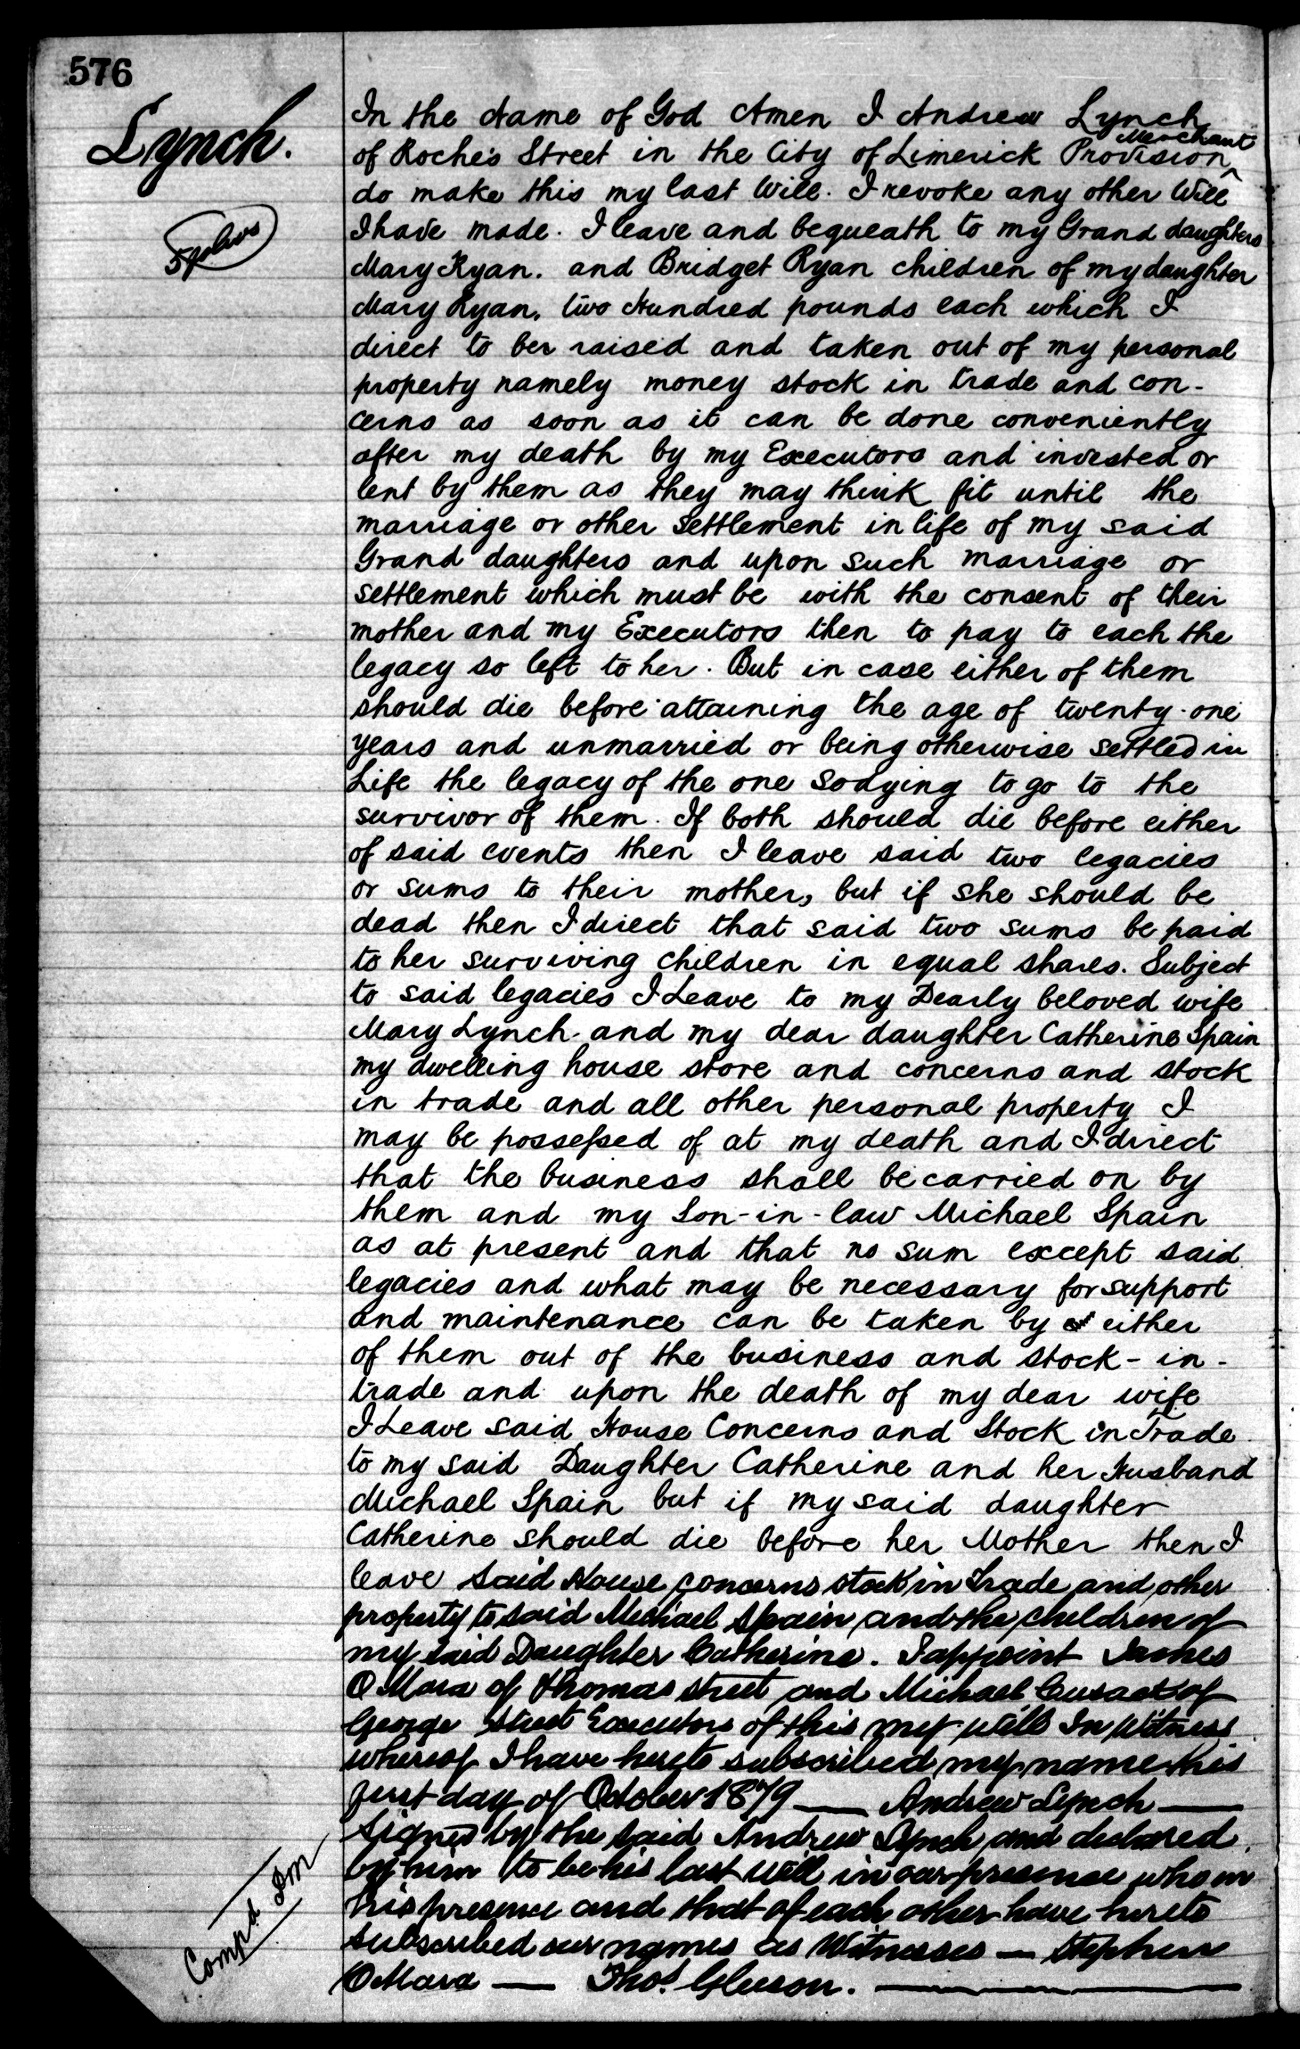 576
Lynch.
In the Name of God Amen I Andrew Lynch
of Roche's Street in the City of Limerick Provision Merchant
do make this my last Will. I revoke any other Will
I have made. I leave and bequeath to my Grand daughters
Mary Ryan. and Bridget Ryan children of my daughter
Mary Ryan, two Hundred pounds each which I
direct to ber raised and taken out of my personal
property namely money stock in trade and con-
cerns as soon as it can be done conveniently
after my death by my Executors and invested or
lent by them as they may think fit until the
marriage or other settlement in life of my said
Grand daughters and upon such marriage or
settlement which must be with the consent of their
mother and my Executors then to pay to each the
legacy so left to her. But in case either of them
should die before attaining the age of twenty-one
years and unmarried or being otherwise settled in
Life the legacy of the one so dying to go to the
survivor of them. If both should die before either
of said events then I leave said two legacies
or sums to their mother, but if she should be
dead then I direct that said two sums be paid
to her surviving children in equal shares. Subject
to said legacies I Leave to my Dearly beloved wife
Mary Lynch and my dear daughter Catherine Spain
my dwelling house store and concerns and stock
in trade and all other personal property I
may be possessed of at my death and I direct
that the business shall be carried on by
them and my Son-in-law Michael Spain
as at present and that no sum except said
legacies and what may be necessary for support
and maintenance can be taken by either
of them out of the business and stock-in-
trade and upon the death of my dear wife
I Leave said House Concerns and Stock in Trade
to my said Daughter Catherine and her Husband
Michael Spain but if my said daughter
Catherine should die before her Mother then I
leave said House concerns stock in Trade and other
property to said Michael Spain and the children of
my said Daughter Catherine. I appoint James
O Mara of Thomas street and Michael Cusack of
George Street Executors of this my will In Witness
whereof I have hereto subscribed my name this
first day of October 1879 — Andrew Lynch —
Signed by the said Andrew Lynch and declared
by him to be his last will in our presence who in
his presence and that of each other have hereto
subscribed our names as Witnesses — Stephen
O Mara — Thos. Gleeson. —
Compd